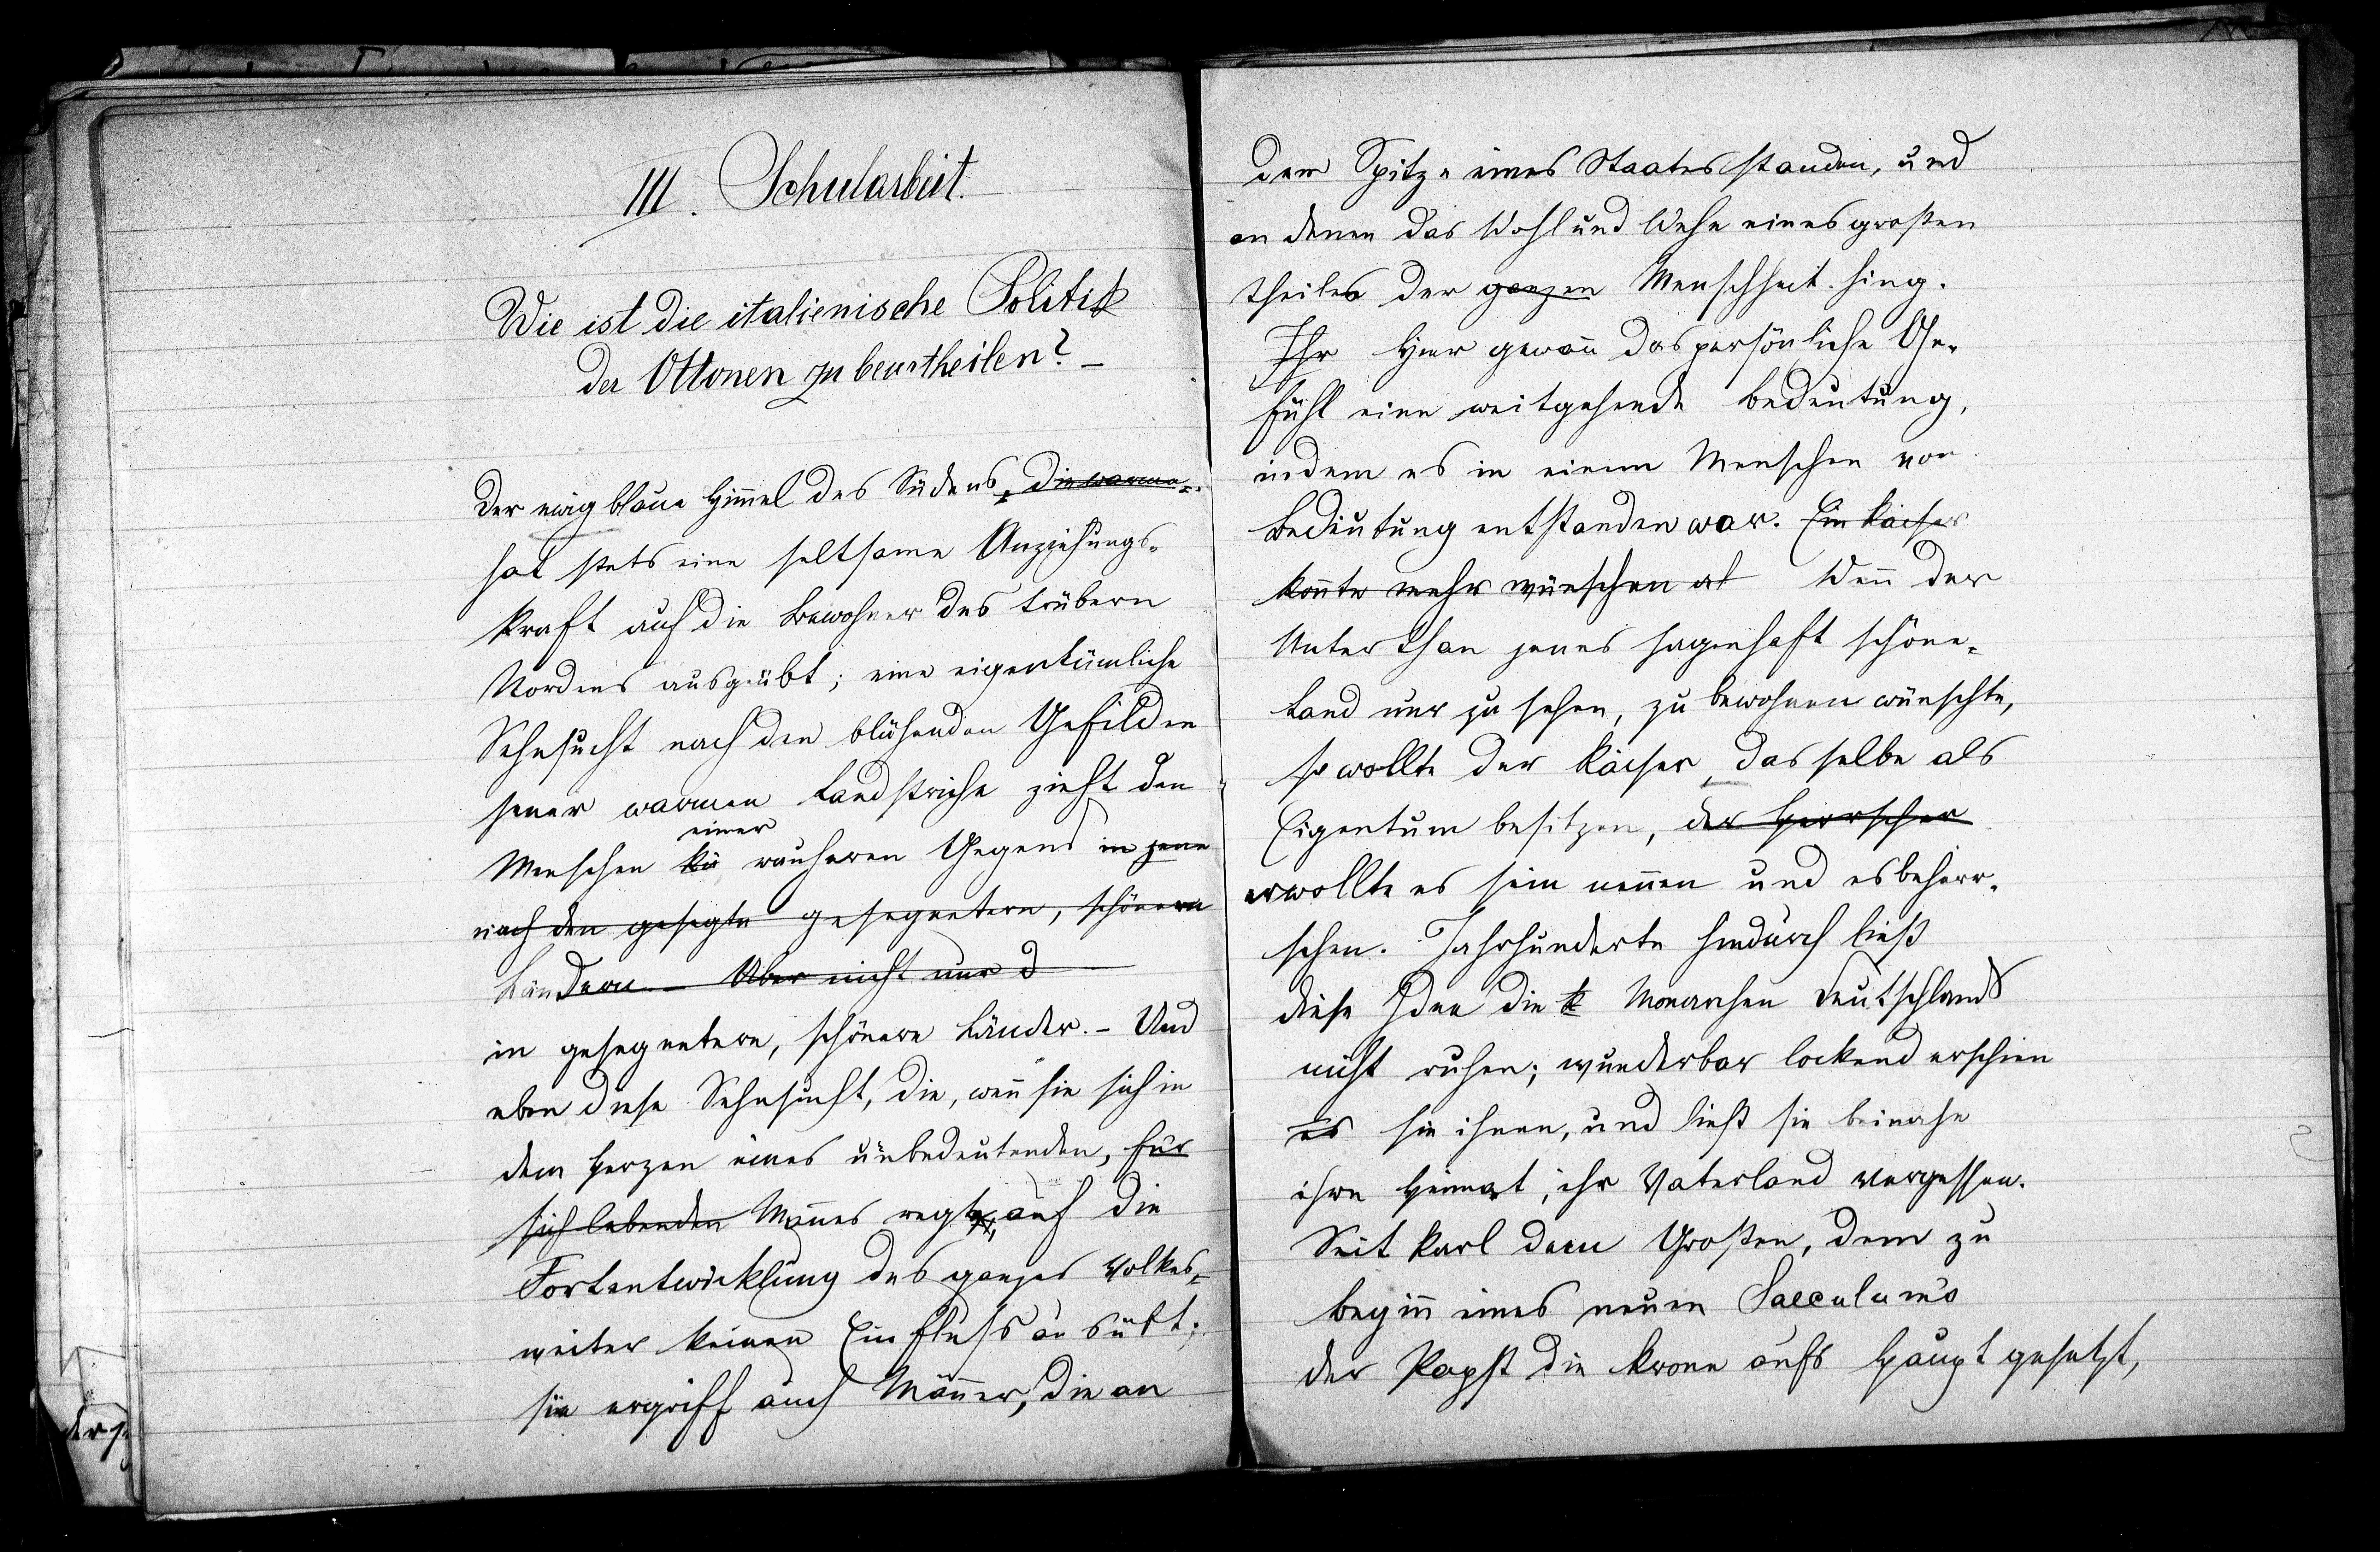 III. Schularbeit.
Wie ist die italienische Politik
der Ottonen zu beurtheilen? –
Der ewig blaue Himmel des Südens, die warme
hat stets eine seltsame Anziehungs-
kraft auf die Bewohner des trübern
Nordens ausgeübt; eine eigentümliche
Sehnsucht nach den blühenden Gefilden
jener warmen Landstriche zieht den
einer
Menschen kü rauheren Gegend in jene
nach den gesegte gesegnetern, schönern
Ländern. – Aber nicht nur d
in gesegnetere, schönere Länder. – Und
eben diese Sehnsucht, die, wenn sie sich in
dem Herzen eines unbedeutenden, für
sich lebenden Mannes regt, auf die
Fortentwicklung des ganzes Volkes
weiter keinen Einfluss ausübt;
sie ergriff auch Männer, die an
der Spitze eines Staates standen, und
an denen das Wohl und Wehe eines großen
theiles der ganzen Menschheit hing.
Ihr Hier gewann das persönliche Ge-
fühl eine weitgehende Bedeutung,
indem es in einem Menschen von
Bedeutung entstanden war. Ein Kaiser
konnte mehr wünschen al Wenn der
Unterthan jenes sagenhaft schöne
Land nur zu sehen, zu bewohnen wünschte,
so wollte der Kaiser, dasselbe als
Eigentum besitzen, der Herrscher
er wollte es sein nennen und es beherr-
schen. Jahrhunderte hindurch ließ
diese Idee die k Monarchen Deutschlands
nicht ruhen; wunderbar lockend erschien
es sie ihnen, und ließ sie beinahe
ihre Heimat, ihr Vaterland vergessen.
Seit Karl dem Großen, dem zu
Beginn eines neuen Saeculums
der Papst die Krone aufs Haupt gesetzt,